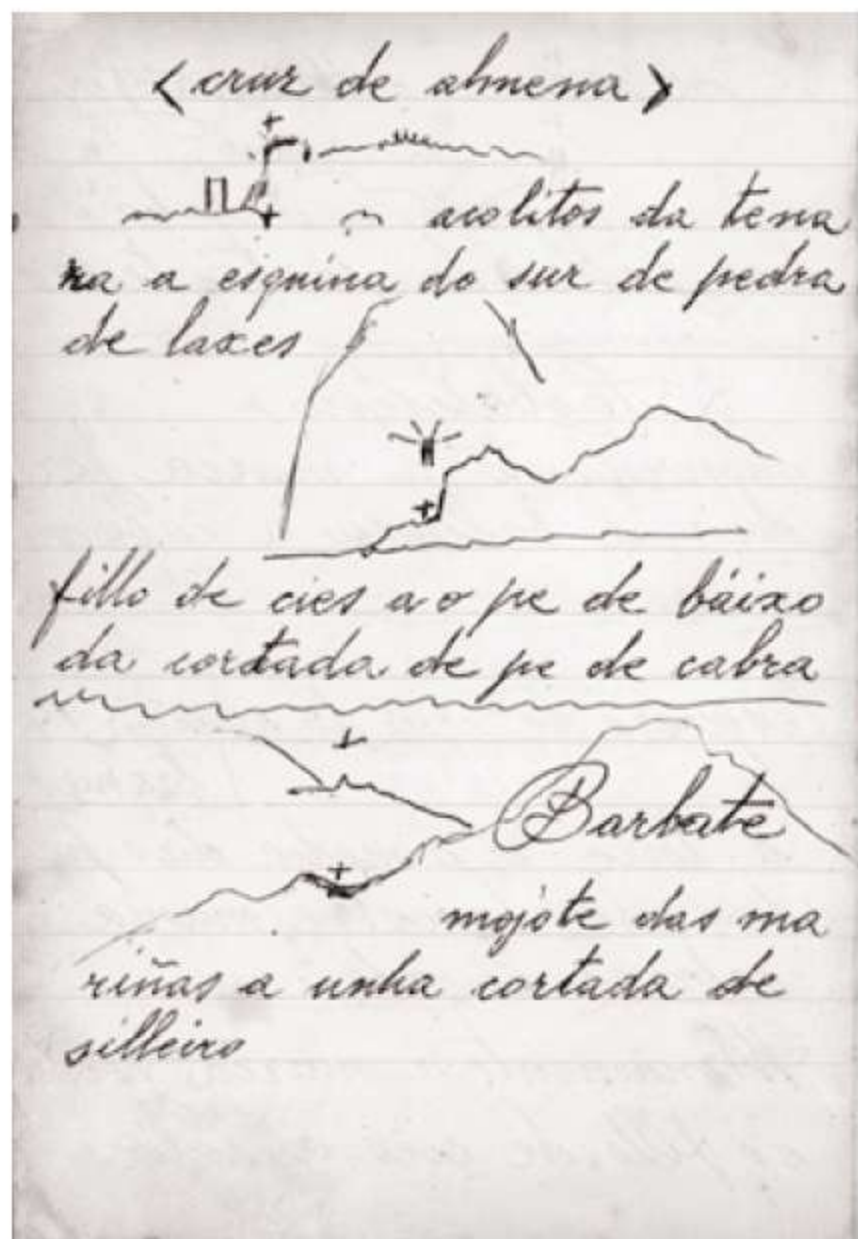 <cruz de almena>
acolitos da tena
na a esquina do sur de pedra
de laxes
fillo de cies a o pe de báixo
da cortada de pe de cabra
Barbate
mojote das ma
riñas a unha cortada de
silleiro